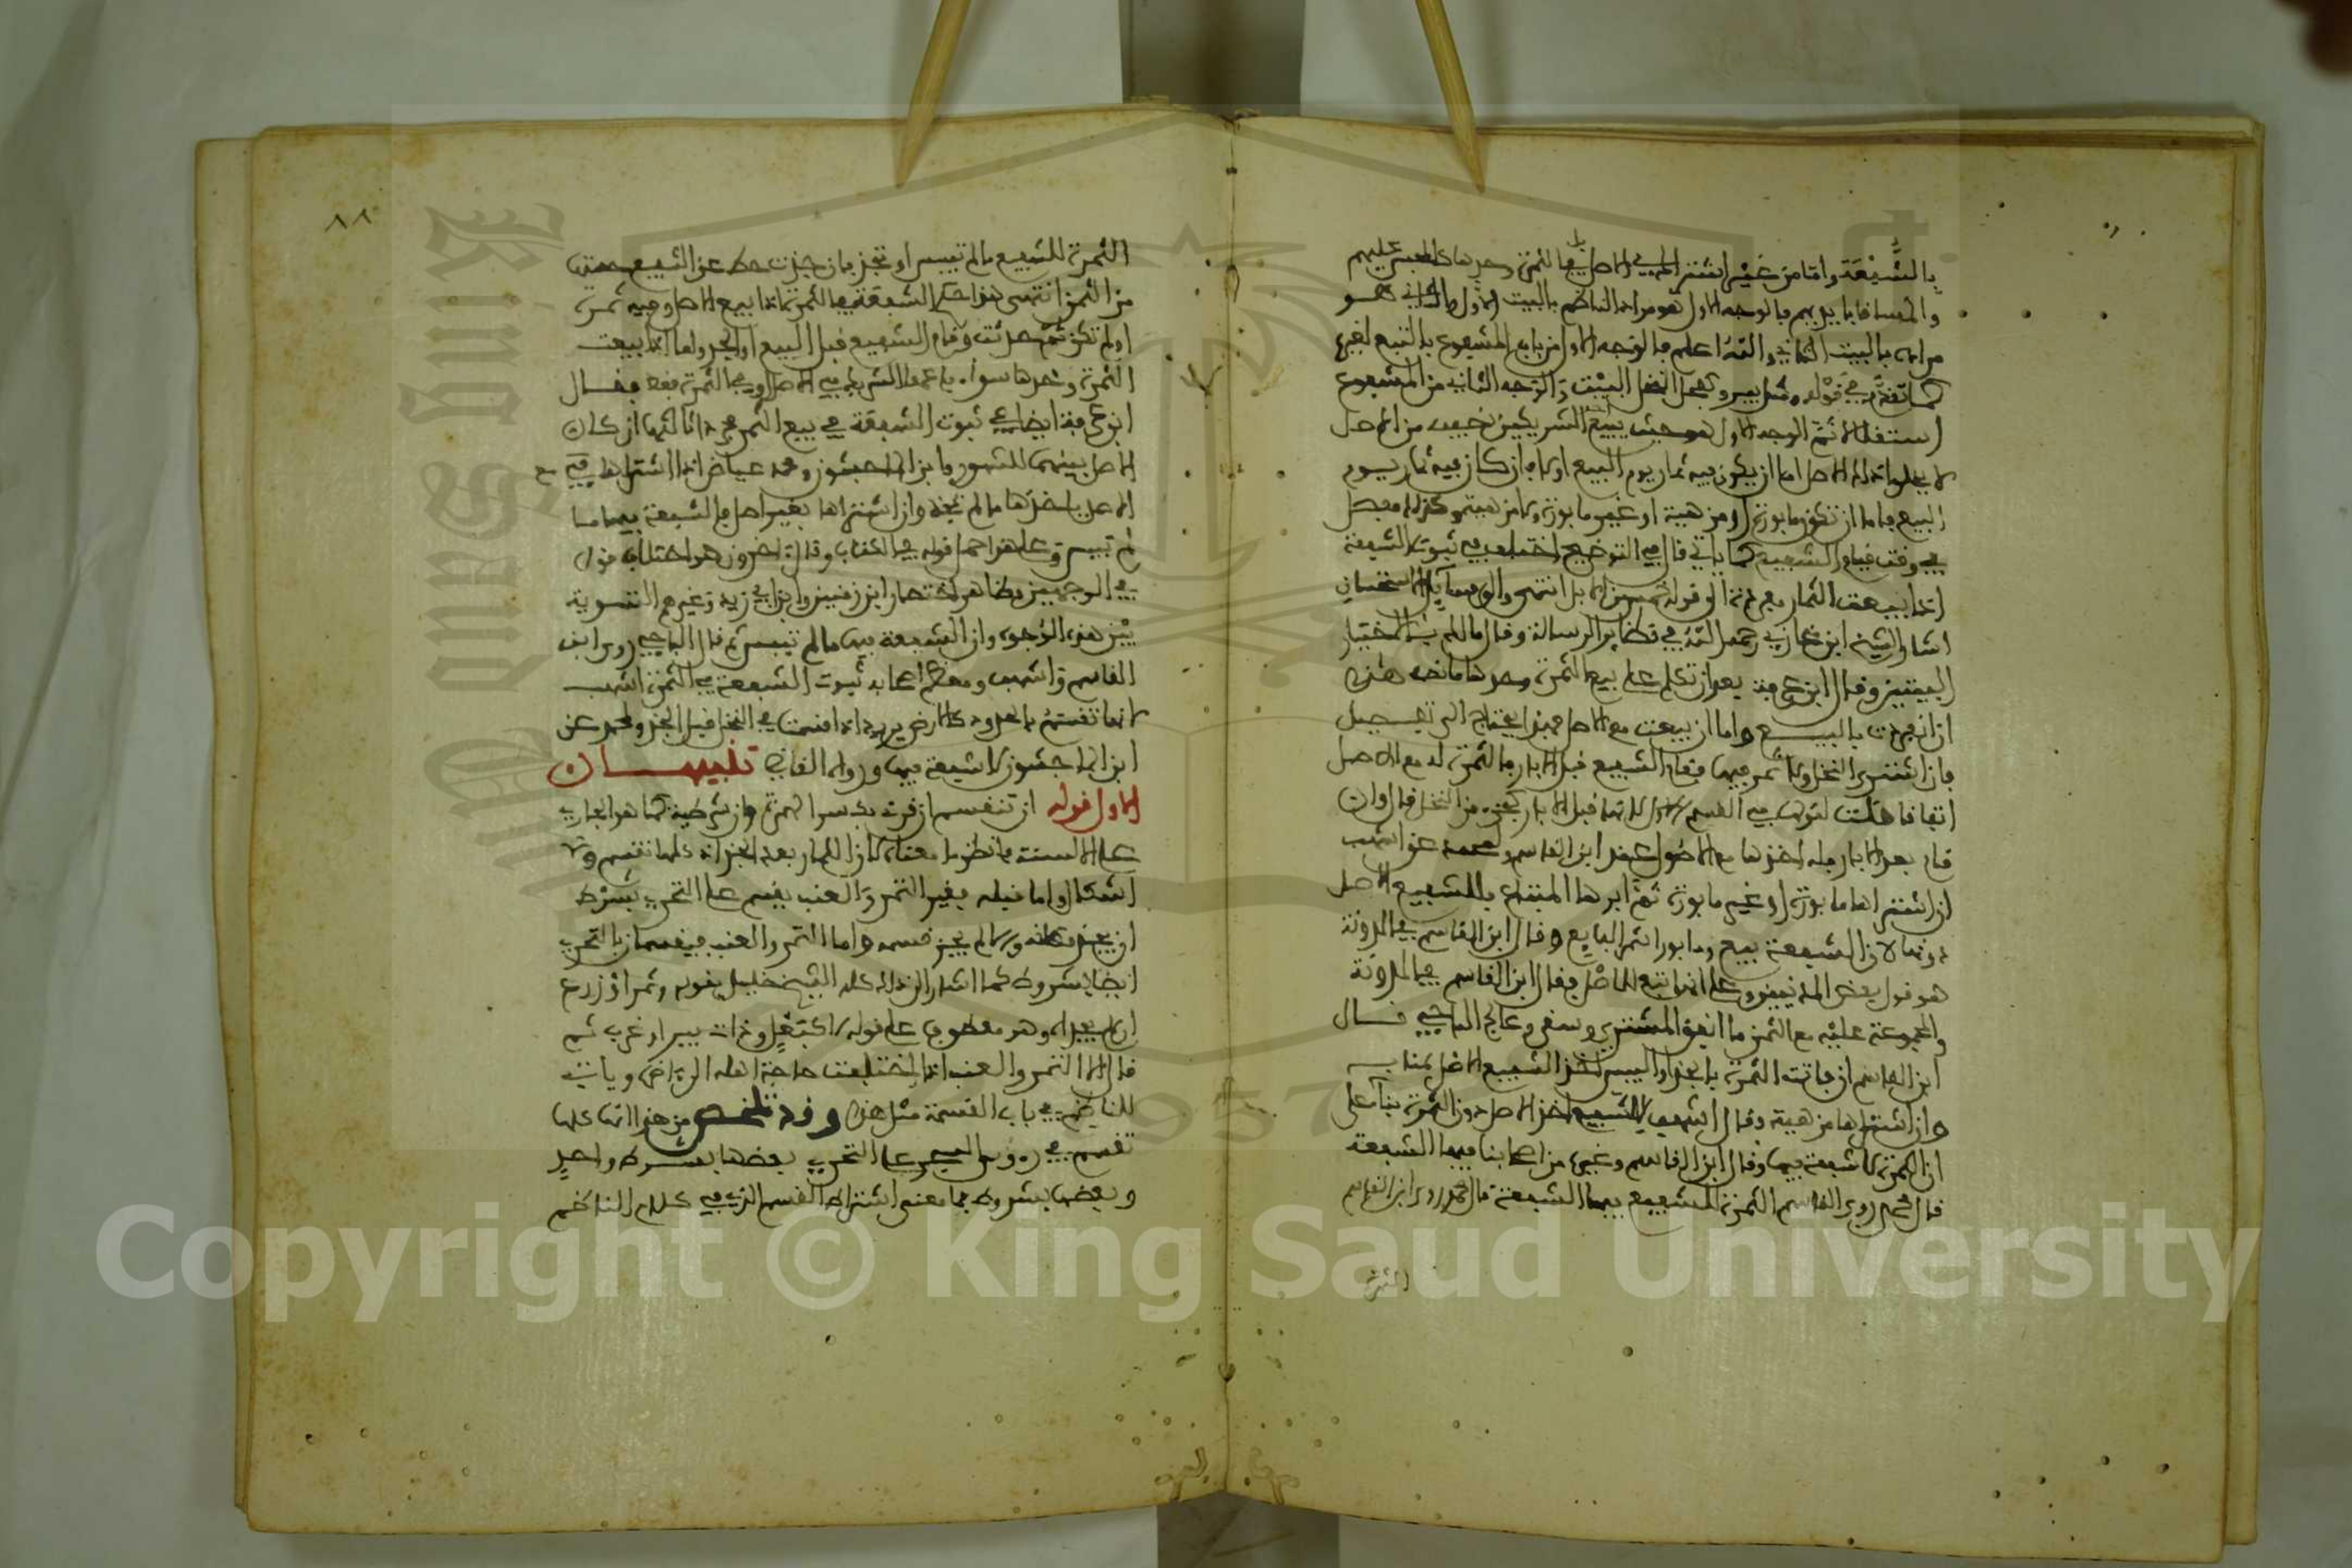 بالشفعة واما من غير اشتراك في الاصل بل في الثمرة وحدها كالحبس عليهم
والمساقاة بايديهم فالوجه الاول هو مراد الناظم بالبيت الاول والثاني هو
مراده بالبيت الثاني والله اعلم فالوجه الاول من باب المشفوع بالتبع لغيره
كما تقدم في قوله ومثل بير وكفحل النخل البيت والوجه الثاني من المشفوع
استقلالا ثم الوجه الاول هو حيث يبيع احد الشريكين نصيبه من اصل
لا يخلو ذلك الاصل اما ان يكون فيه ثمار يوم البيع او لا فان كان فيه ثمار يوم
البيع فاما ان تكون مابورة او مزهية او غير مابورة ولا مزهية وكذلك مفصل
في وقت قيام الشفيع كما ياتي قال في التوضيح اختلف في ثبوت الشفعة
اذا بيعت الثمار مفردة الى قوله انتهى والى مسايل الاستحسان
اشار الشيخ ابن غازي رحمه الله في نظاير الرسالة وقال مالك الاختيار
البيتين وقال ابن عرفة بعد ان تكلم على بيع الثمرة وحدها ما نصه هذه
ان انفردت بالبيع واما ان بيعت مع الاصل فهذا يحتاج الى تفصيل
فان اشترى النخل ولا ثمر فيها فقام الشفيع قبل الابار فالثمرة له مع الاصل
اتفاقا قبل الابار كبعض من النخل قال وان
قام بعد الابار فله اخذها مع الاصول عند ابن القاسم عن اشهب
ان اشتراها مابورة او غير مابورة ثم ابرها المبتاع فللشفيع الاصل
دونها لان الشفعة بيع وما بورا ثمر البايع وقال ابن القاسم في المدونة
هو قول بعض المدنيين وعلى انها تتبع الاصل فقال ابن القاسم في المدونة
والمجموعة عليه مع الثمن ما انفق المشتري وسقى وعالج الباجي قال
ابن القاسم ان فاتت الثمرة بالجذاذ او اليبس اخذ الشفيع الاصل بمنابه
وان اشتراها مزهية وقال اشهب للشفيع اخذ الاصل دون الثمرة بناء على
ان الثمرة لا شفعة فيها وقال ابن القاسم وغيره من اصحابنا فيها الشفعة
قال محمد روى ابن القاسم الثمرة للشفيع فيها الشفعة قال محمد روى ابن القاسم
الثمرة
٨٨
الثمرة للشفيع ما لم تيبس او تجذ فان جذت حط عن الشفيع حصتها
من الثمن انتهى هذا حكم الشفعة في الثمرة اذا بيع الاصل وفيه ثمرة
او لم تكن ثم حدثت وقام الشفيع قبل البيع او الجذ واما اذا بيعت
الثمرة وحدها سواء باعها الشريك في الاصل او في الثمرة فقط فقال
ابن عرفة ايضا في ثبوت الشفعة في بيع الثمرة ثالثها ان كان
الاصل بينهما للمشهور وابن الماجشون وعن عياض اذا اشتراها مع
الاصل ياخذها ما لم تجذ وان اشتراها بغير اصل فالشفعة فيها ما
لم تيبس وعلى هذا حمل قوله في الكتاب وقال اخرون هو اختلاف قول
في الوجهين وظاهر اختصار ابن زمنين وابن ابي زيد وغيرهم التسوية
بين هذه الوجوه وان الشفعة فيها ما لم تيبس ثم قال الباجي روى ابن
القاسم واشهب ومعظم اصحابه ثبوت الشفعة في الثمرة اشهب
لانها تقسم بالحدود كالارض يريد اذا اقتسما في النخل قبل الجذ ومحمد عن
ابن الماجشون لا شفعة فيها ورواه القاضي تنبيهان
الاول قوله ان تنقسم ان قرئ بكسر الهمزة وان شرطية كما هو الجاري
على الالسنة فانظر ما معناه لان الثمار بعد الجذاذ كلها تنقسم ولا
اشكال واما قبله فغير التمر والعنب يقسم على التحري بشرط
ان يجز مكانه والا لم يجز قسمه واما التمر والعنب فيقسمان بالتحري
ايضا بشروط كما اشار الى ذلك كله الشيخ خليل بقوله وثمر او زرع
ان لم يجذاه وهو معطوف على قوله لا كبغل وذات بير او غرب ثم
قال الا التمر والعنب اذا اختلفت حاجة اهله الى اخره وياتي
للناظم في باب القسمة مثل هذه وقد تلخص من هذا انها كلها
تقسم في رءوس الشجر على التحري بعضها بشرط واحد
وبعضها بشروط فما معنى اشتراط القسم الذي في كلام الناظم
Copyright © King Saud University
King Saud University
1957